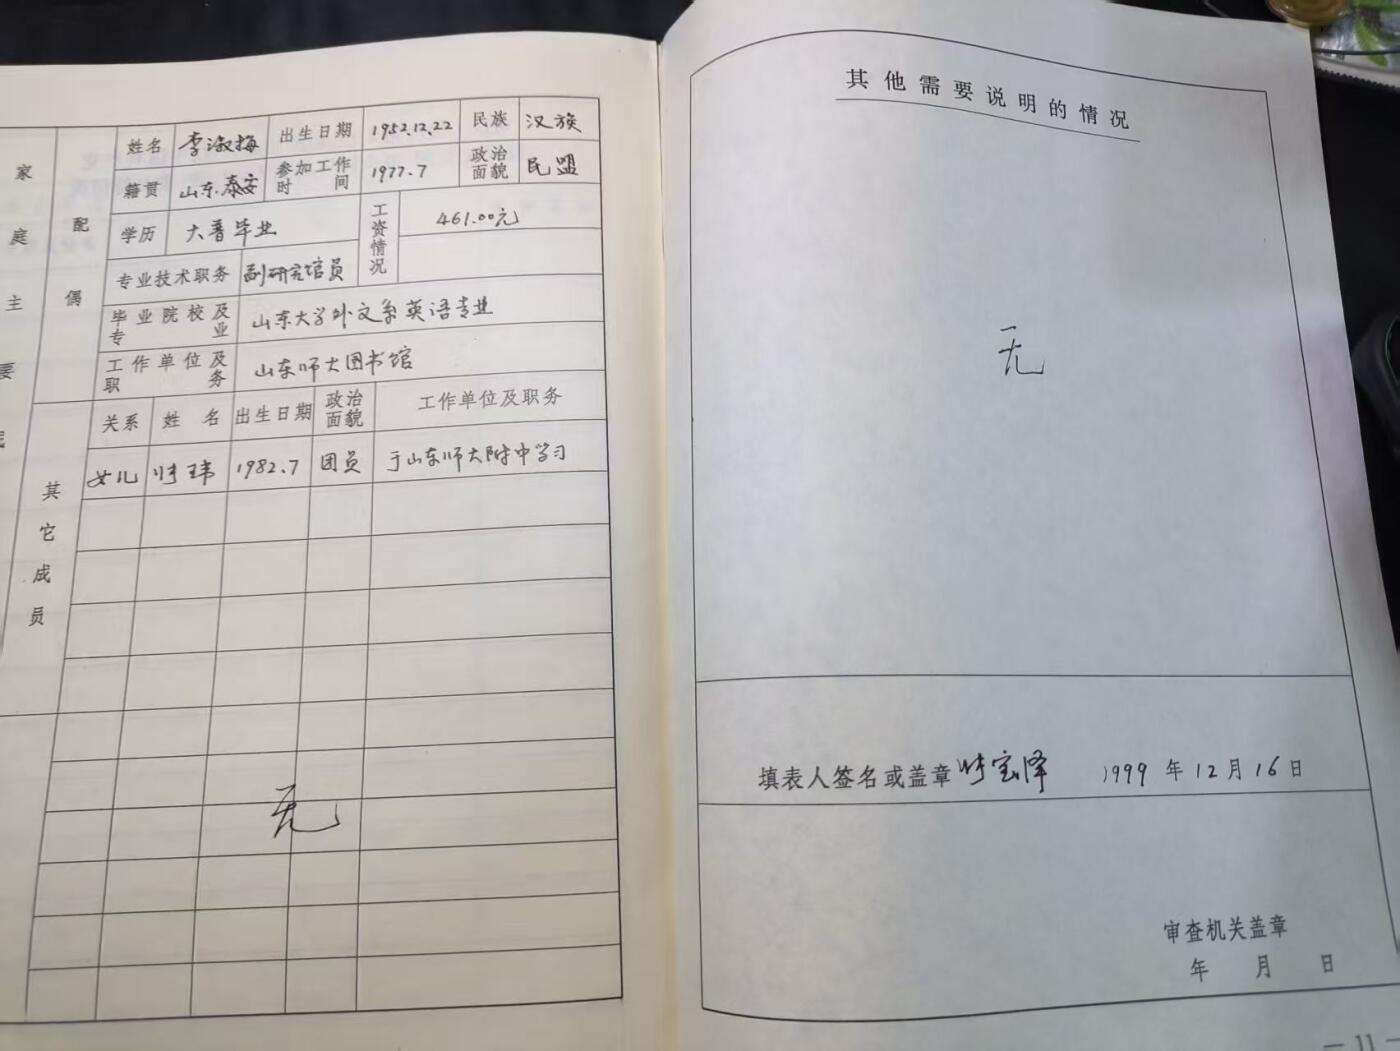 家庭主要
配偶
姓名 李淑梅 出生日期 1952.12.22 民族 汉族
籍贯 山东.泰安 参加工作时间 1977.7 政治面貌 民盟
学历 大普毕业 工资情况 461.00元
专业技术职务 副研究馆员
毕业院校及专业 山东大学外文系英语专业
工作单位及职务 山东师大图书馆
其它成员
关系 姓名 出生日期 政治面貌 工作单位及职务
女儿 玮 1982.7 团员 于山东师大附中学习
无
其他需要说明的情况
无
填表人签名或盖章 宝泽 1999年12月16日
审查机关盖章
年 月 日
— 11 —